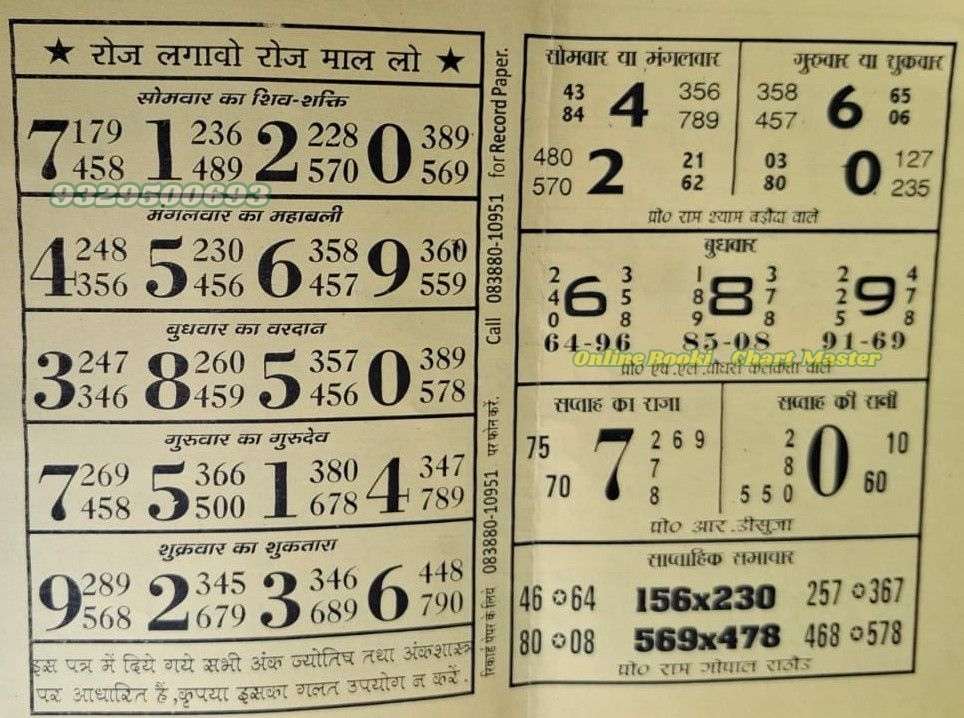 ★ रोज लगावो रोज माल लो ★
सोमवार का शिव-शक्ति
7 179 1 236 2 228 0 389
458 489 570 569
9329500693
मंगलवार का महाबली
4 248 5 230 6 358 9 360
356 456 457 559
बुधवार का वरदान
3 247 8 260 5 357 0 389
346 459 456 578
गुरुवार का गुरुदेव
7 269 5 366 1 380 4 347
458 500 678 789
शुक्रवार का शुकतारा
9 289 2 345 3 346 6 448
568 679 689 790
इस पत्र में दिये गये सभी अंक ज्योतिष तथा अंकशास्त्र
पर आधारित हैं ,कृपया इसका गलत उपयोग न करें.
रिकार्ड पेपर के लिय 083880-10951 पर फोन करें. Call 083880-10951 for Record Paper.
सोमवार या मंगलवार
43 4 356
84 789
480 2 21
570 62
गुरुवार या शुक्रवार
358 6 65
457 06
03 0 127
80 235
प्रो० राम श्याम बड़ौदा वाले
बुधवार
2 3 1 3 2 4
4 6 5 8 8 7 2 9 7
0 8 9 8 5 8
64-96 85-08 91-69
Online Booki Chart Master
प्रो० एच.एल.चौधरी कलकत्ता वाले
सप्ताह का राजा
75 7 2 6 9
7
70 8
सप्ताह की रानी
2 0 10
8
5 5 0 60
प्रो० आर.डीसुजा
साप्ताहिक समाचार
46 ✪ 64 156x230 257 ✪ 367
80 ✪ 08 569x478 468 ✪ 578
प्रो० राम गोपाल राठौड